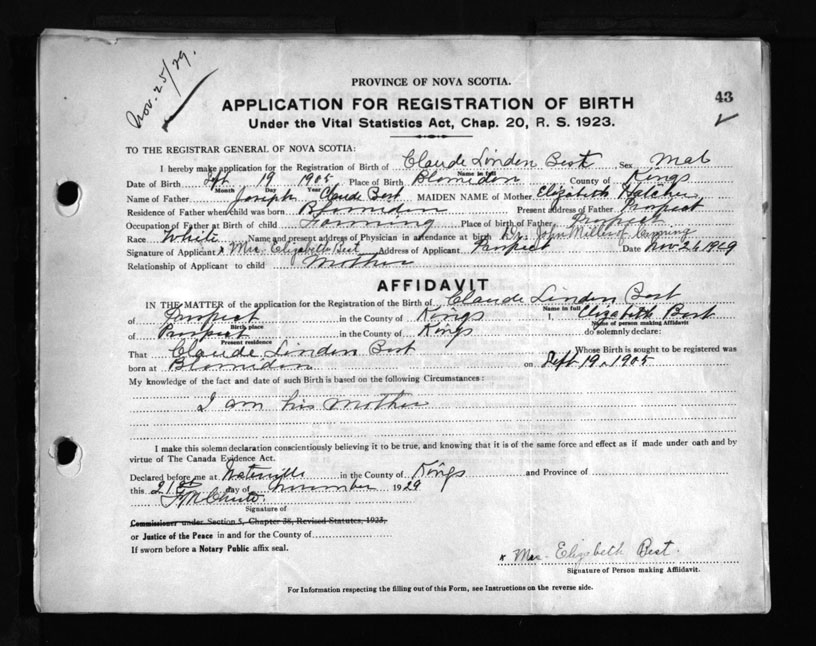 Nov. 25/29.
PROVINCE OF NOVA SCOTIA.
43
APPLICATION FOR REGISTRATION OF BIRTH
Under the Vital Statistics Act, Chap. 20, R. S. 1923.
TO THE REGISTRAR GENERAL OF NOVA SCOTIA:
I hereby make application for the Registration of Birth of Claude Linden Best Sex Male
Name in full
Date of Birth Sept 19 1905 Place of Birth Blomidon County of Kings
Month Day Year
Name of Father Joseph Claude Best MAIDEN NAME of Mother Elizabeth
Residence of Father when child was born Blomidon Present address of Father Prospect
Occupation of Father at Birth of child Farming Place of birth of Father Prospect
Race White Name and present address of Physician in attendance at birth Dr. John Miller of Canning
Signature of Applicant x Mrs. Elizabeth Best Address of Applicant Prospect Date Nov 21 1929
Relationship of Applicant to child Mother
AFFIDAVIT
IN THE MATTER of the application for the Registration of the Birth of Claude Linden Best
Name in full
of Prospect in the County of Kings I, Elizabeth Best
Birth place Name of person making Affidavit
of Prospect in the County of Kings do solemnly declare:
Present residence
That Claude Linden Best Whose Birth is sought to be registered was
born at Blomidon on Sept 19. 1905
My knowledge of the fact and date of such Birth is based on the following Circumstances:
I am his Mother
I make this solemn declaration conscientiously believing it to be true, and knowing that it is of the same force and effect as if made under oath and by
virtue of The Canada Evidence Act.
Declared before me at Waterville in the County of Kings and Province of
this 21st day of November 1929
Signature of
Commissioner under Section 5, Chapter 38, Revised Statutes, 1923,
or Justice of the Peace in and for the County of
If sworn before a Notary Public affix seal.
x Mrs. Elizabeth Best.
Signature of Person making Affidavit.
For Information respecting the filling out of this Form, see Instructions on the reverse side.